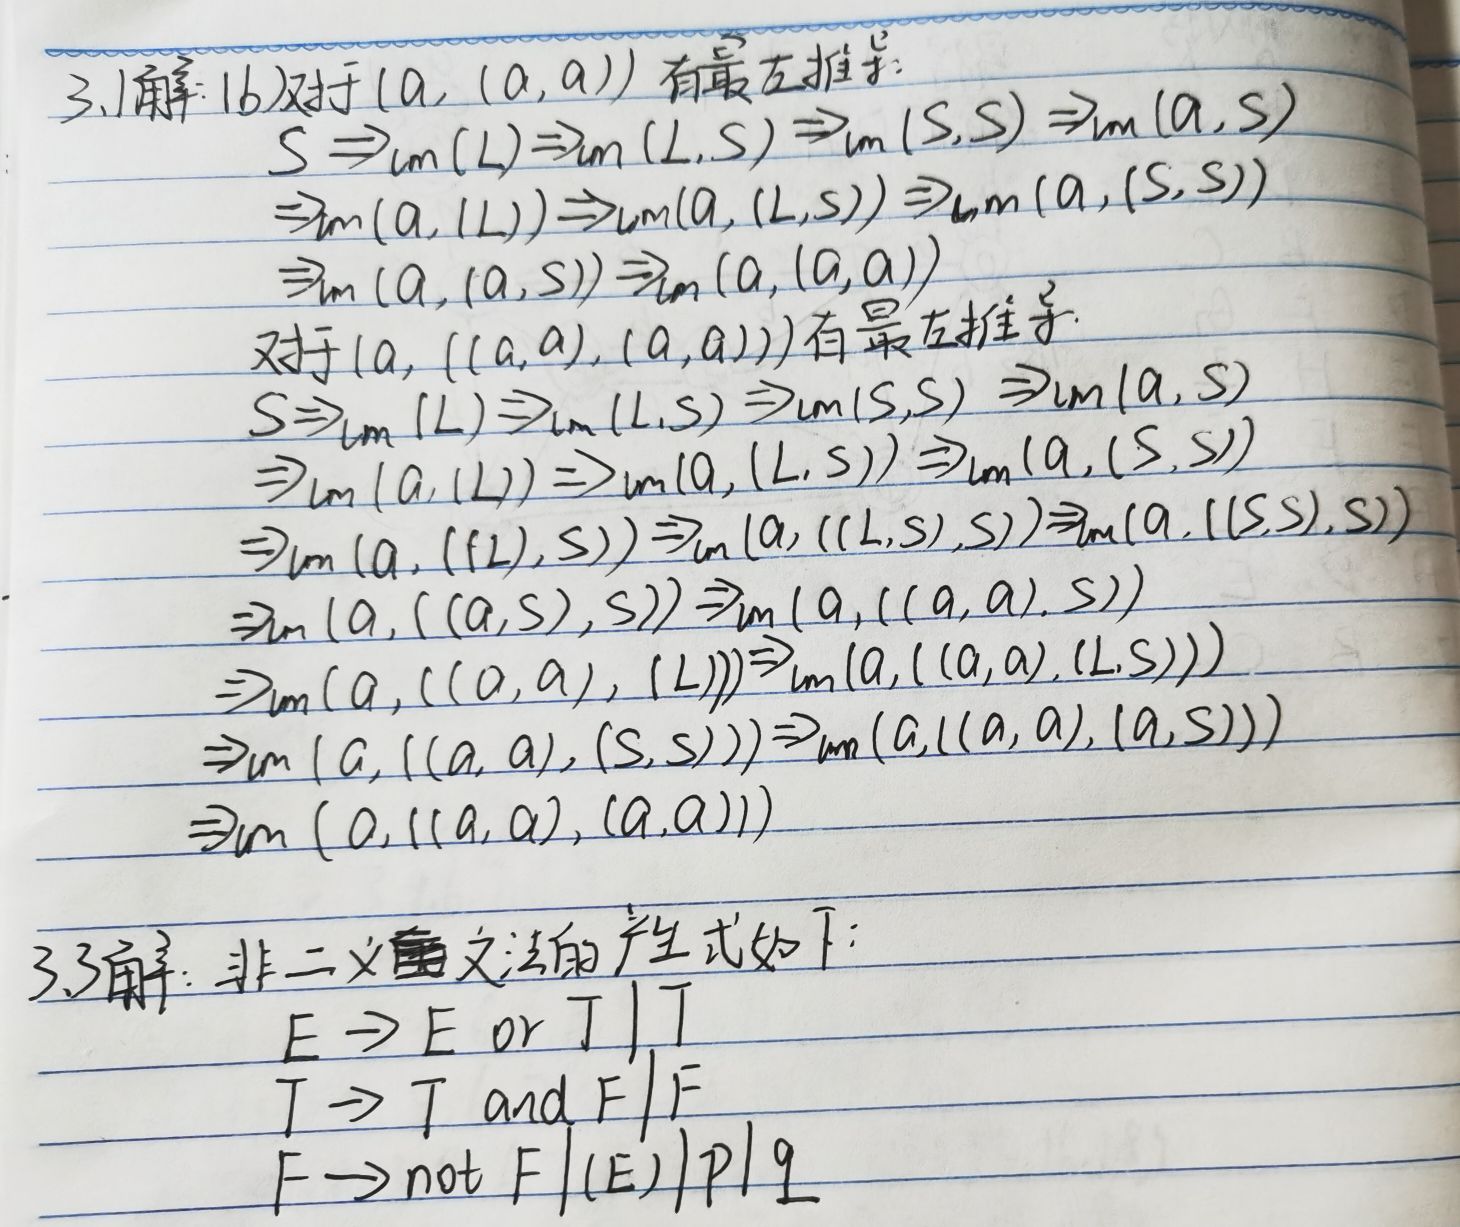 3.1解:(b)对于(a, (a,a)) 有最左推导:
S⇒lm(L)⇒lm(L,S)⇒lm(S,S)⇒lm(a,S)
⇒lm(a,(L))⇒lm(a,(L,S))⇒lm(a,(S,S))
⇒lm(a,(a,S))⇒lm(a,(a,a))
对于(a,((a,a),(a,a)))有最左推导.
S⇒lm(L)⇒lm(L,S)⇒lm(S,S)⇒lm(a,S)
⇒lm(a,(L))⇒lm(a,(L,S))⇒lm(a,(S,S))
⇒lm(a,((L),S))⇒lm(a,((L,S),S))⇒lm(a,((S,S),S))
⇒lm(a,((a,S),S))⇒lm(a,((a,a),S))
⇒lm(a,((a,a),(L)))⇒lm(a,((a,a),(L,S)))
⇒lm(a,((a,a),(S,S)))⇒lm(a,((a,a),(a,S)))
⇒lm(a,((a,a),(a,a)))
3.3解:非二义文法的产生式如下:
E→E or T|T
T→T and F|F
F→not F|(E)|p|q